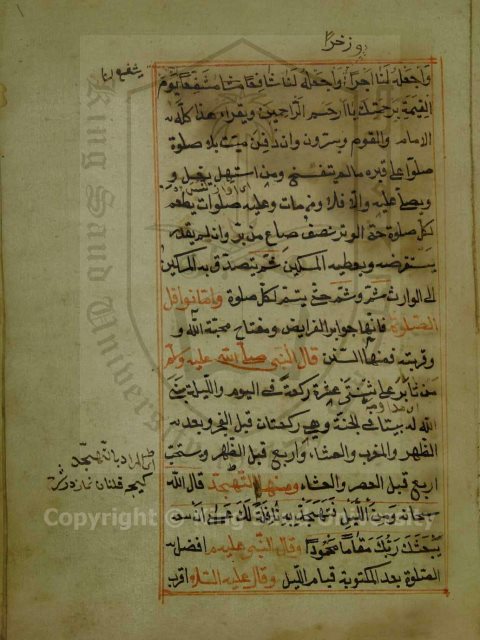 و ذخرا
يشفع لنا
واجعله لنا اجرا واجعله لنا شافعا مشفعا يوم
القيمة برحمتك يا ارحم الراحمين ويقراء هذا كله
الامام والقوم ويسرون وان دفن ميت بلا صلوة
صلوا على قبره مالم يتفسخ ومن استهل يغسل و
ويصلى عليه والا فلا ومن مات وعليه صلوات يطعم
لكل صلوة حتى الوتر نصف صاع من بر وان لم يقدر
يستقرضه ويعطيه المسكين ثم يتصدق به المسكين
الى الوارث ثم وثم حتى يتم لكل صلوة واما نوافل
الصلوة فانها جوابر الفرايض ومفتاح محبة الله و
وقربته فمنها السنن قال النبي صلى الله عليه وسلم
من ثابر على ثنتى عشرة ركعة فى اليوم والليلة بنى
الله له بيتا فى الجنة وهى ركعتان قبل الفجر وبعد
الظهر والمغرب والعشاء واربع قبل الظهر ويستحب
اربع قبل العصر والعشاء ومنها التهجد قال الله
سبحانه ومن الليل فتهجد به نافلة لك عسى ان
يبعثك ربك مقاما محمودا وقال النبي عليه افضل
الصلوة بعد المكتوبة قيام الليل وقال عليه السلام اقرب
King Saud University
Copyright © King Saud University